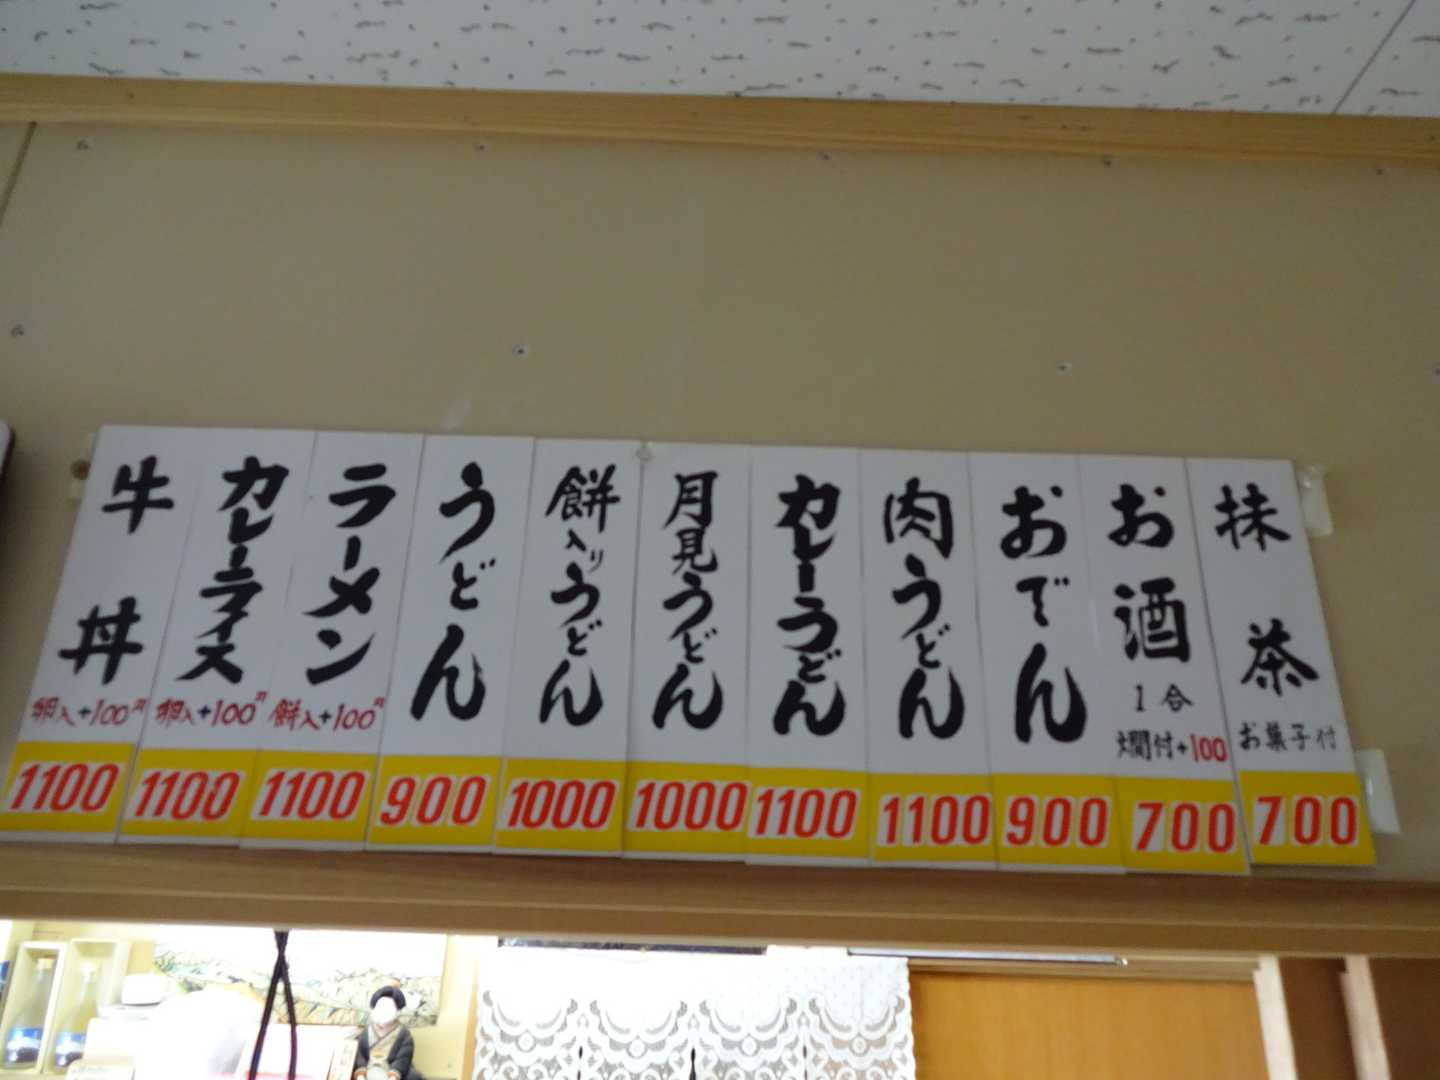 抹茶
お菓子付
700
お酒
1合
燗付+100
700
おでん
900
肉うどん
1100
カレーうどん
1100
月見うどん
1000
餅入りうどん
1000
うどん
900
ラーメン
餅入+100円
1100
カレーライス
卵入+100円
1100
牛丼
卵入+100円
1100